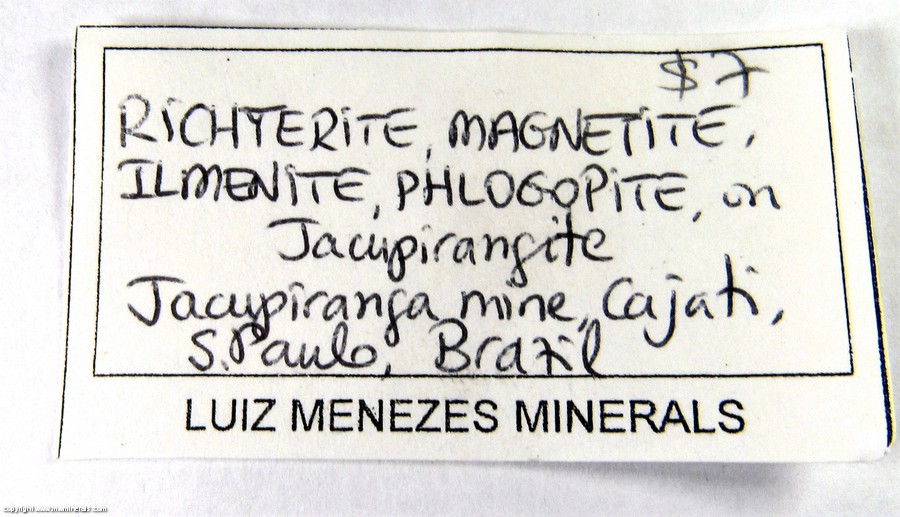 $7
RICHTERITE, MAGNETITE,
ILMENITE, PHLOGOPITE, on
Jacupirangite
Jacupiranga mine, Cajati,
S.Paulo, Brazil
LUIZ MENEZES MINERALS